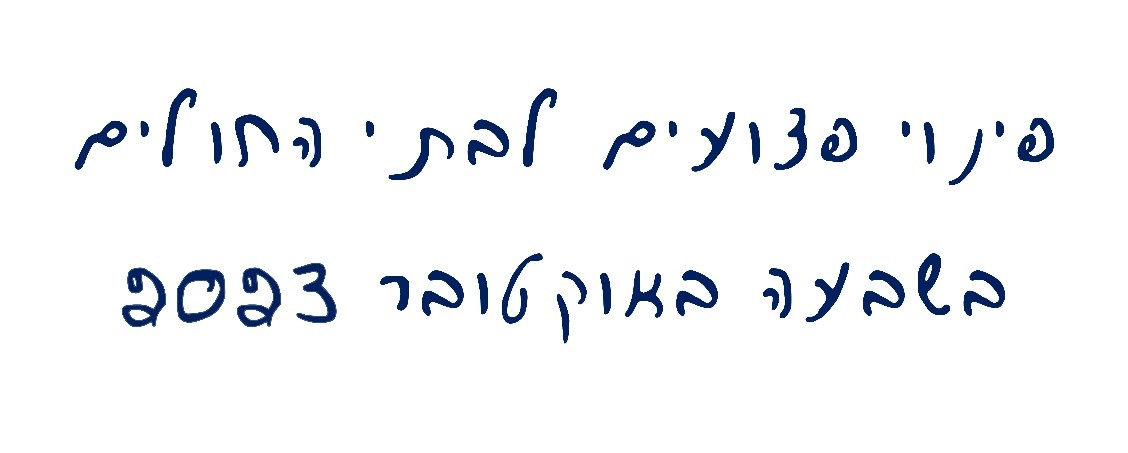 פינוי פצועים לבתי החולים
בשבעה באוקטובר 2023